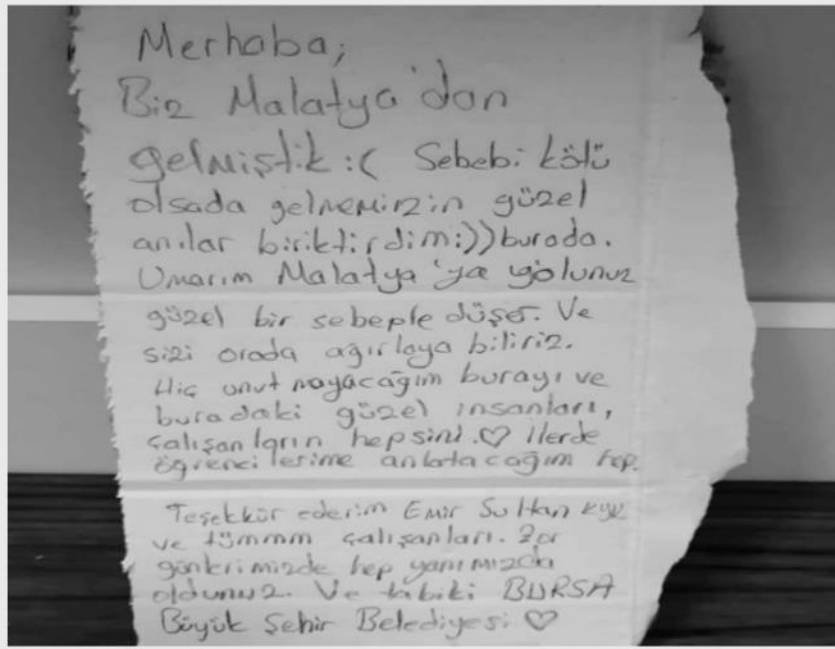 Merhaba;
Biz Malatya'dan
gelmiştik :( Sebebi kötü
olsada gelmemizin güzel
anılar biriktirdim:)) burada.
Umarım Malatya'ya yolunuz
güzel bir sebeple düşer. Ve
sizi orada ağırlaya biliriz.
Hiç unutmayacağım burayı ve
buradaki güzel insanları,
çalışanların hepsini.♡ ilerde
öğrencilerime anlatacağım hep.
Teşekkür ederim Emir Sultan kyk
ve tümmm çalışanları. Zor
günlerimizde hep yanımızda
oldunuz. Ve tabiki BURSA
Büyük Şehir Belediyesi ♡